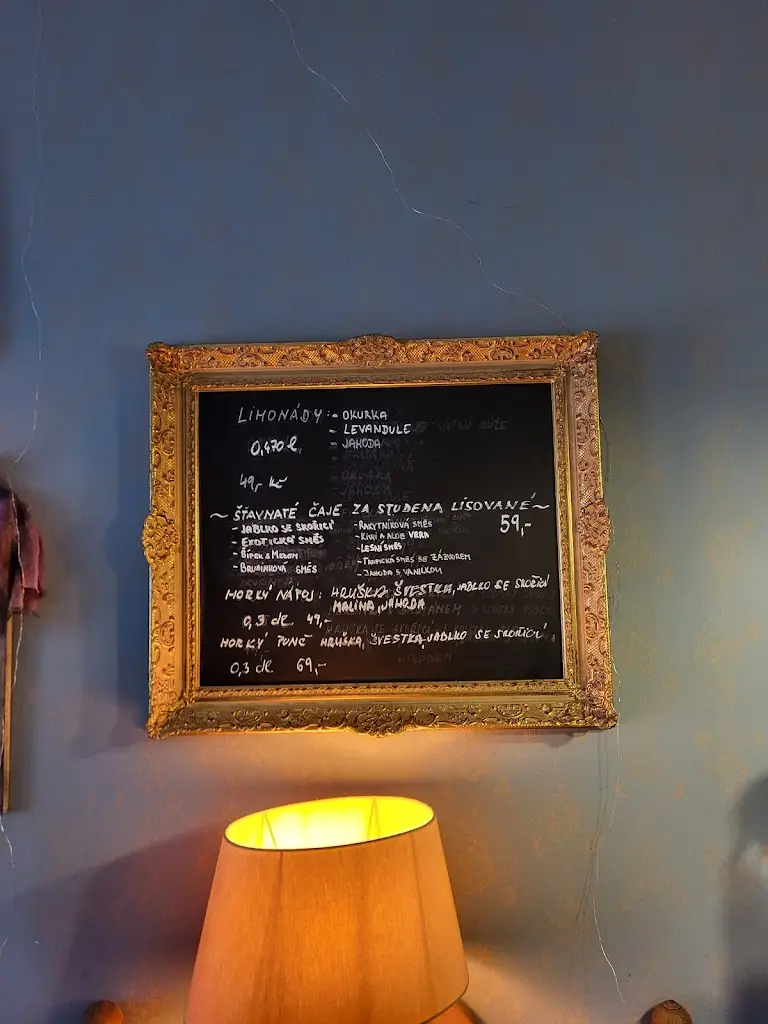 LIMONÁDY :- OKURKA
- LEVANDULE
0,470 l - JAHODA
49,- Kč
~ ŠŤAVNATÉ ČAJE ZA STUDENA LISOVANÉ ~
- JABLKO SE SKOŘICÍ - RAKYTNÍKOVÁ SMĚS 59,-
- EXOTICKÁ SMĚS - KIWI A ALOE VERA
- ŠÍPEK S MEDEM - LESNÍ SMĚS
- BRUSINKOVÁ SMĚS - TROPICKÁ SMĚS SE ZÁZVOREM
- JAHODA S VANILKOU
HORKÝ NÁPOJ : HRUŠKA, ŠVESTKA, JABLKO SE SKOŘICÍ
MALINA, JAHODA
0,3 dl 49,-
HORKÝ PUNČ HRUŠKA, ŠVESTKA, JABLKO SE SKOŘICÍ
0,3 dl 69,-